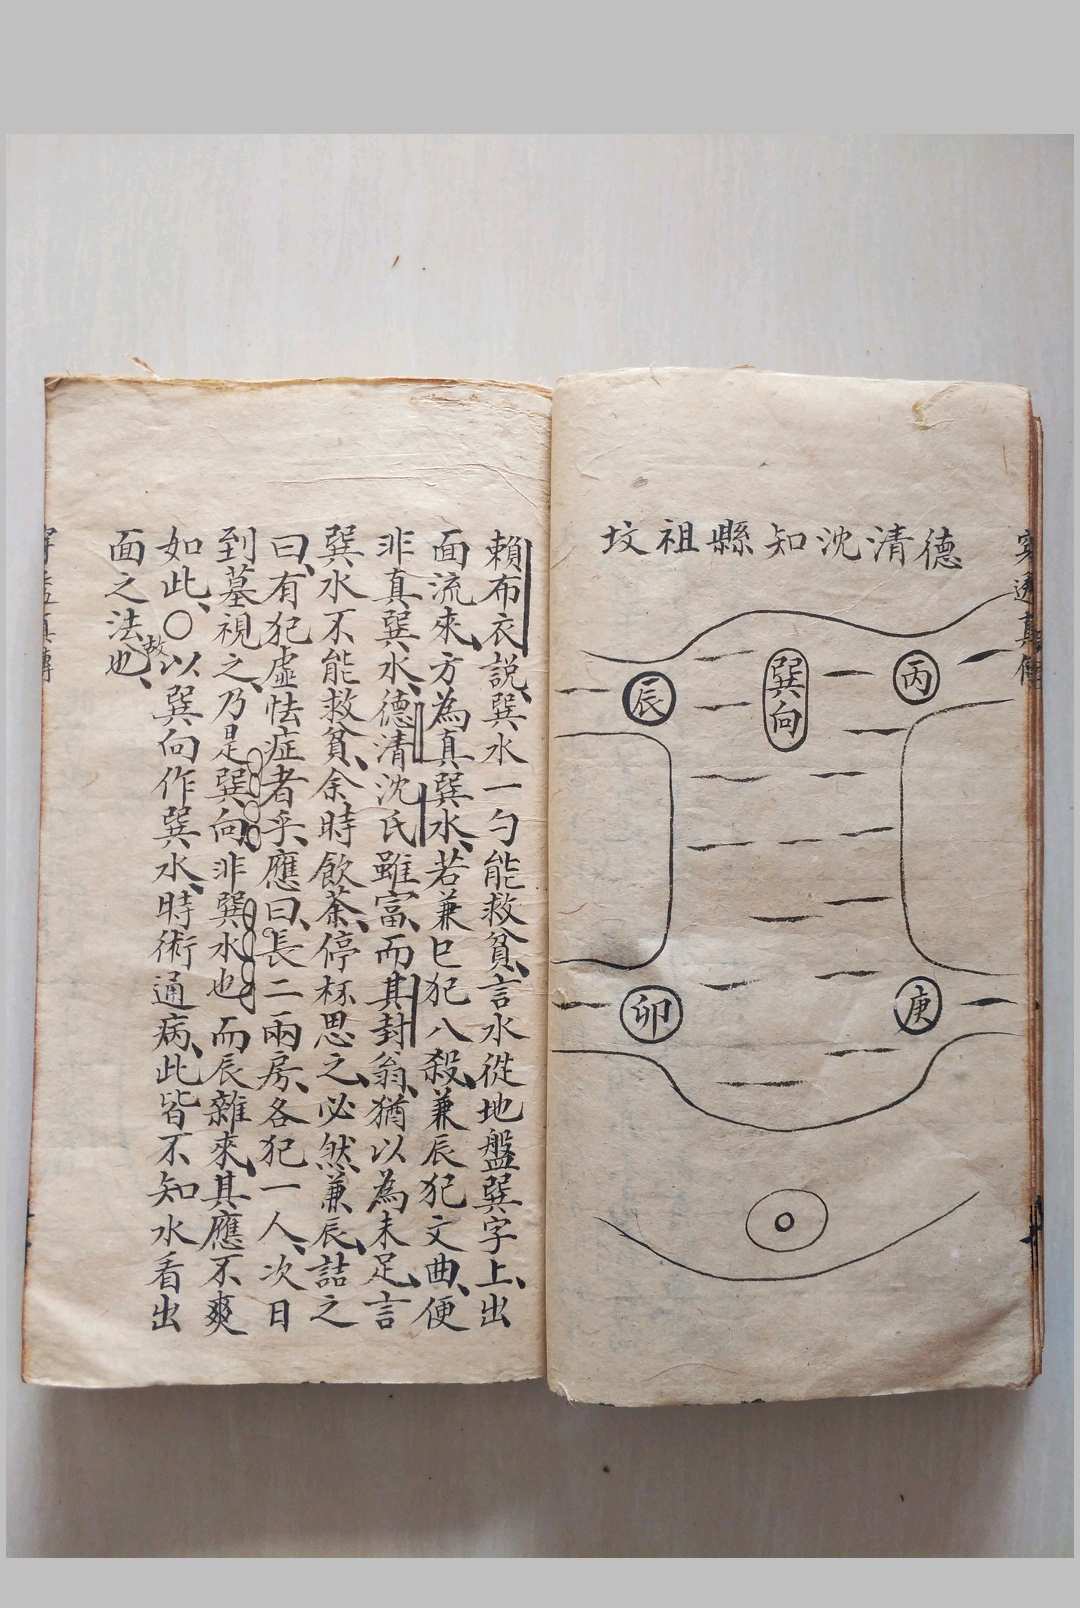 德清沈知縣祖坟
丙
巽向
辰
庚
卯
賴布衣說、巽水一勺能救貧、言水從地盤巽字上、出
面流來、方為真巽水、若兼巳犯八殺、兼辰犯文曲、便
非真巽水、德清沈氏雖富、而其封翁、猶以為未足、言
巽水不能救貧、余時飲茶、停杯思之、必然兼辰、詰之
曰、有犯虛怯症者乎、應曰、長二兩房、各犯一人、次日
到墓視之、乃是巽向、非巽水也、而辰雜來、其應不爽
如此、〇故以巽向作巽水、時術通病、此皆不知水看出
面之法也、